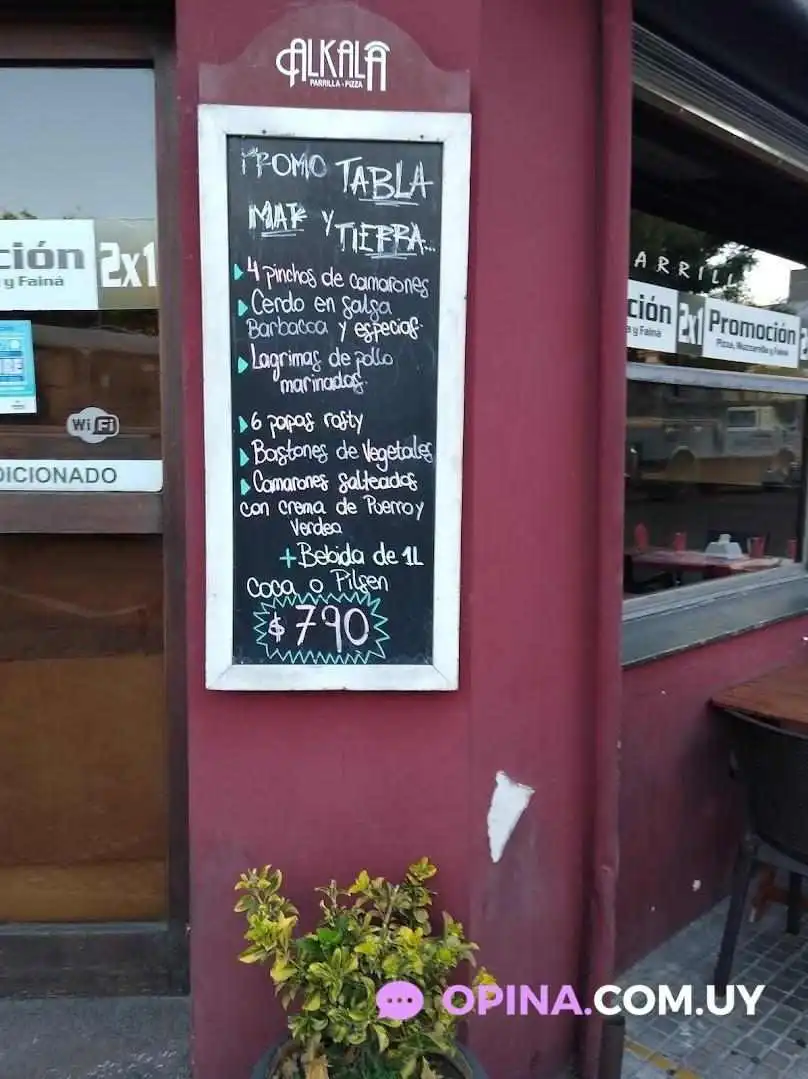 ALKALA
PARRILLA - PIZZA
PROMO TABLA
MAR Y
TIERRA...
4 pinchos de camarones
Cerdo en salsa
Barbacoa y especias.
Lagrimas de pollo
marinados.
6 papas rosty
Bastones de Vegetales
Camarones salteados
con crema de Puerro y
Verdeo
+ Bebida de 1L
Coca o Pilsen
$ 790
ción 2x1
y Fainá
WiFi
DICIONADO
ARRILL
ción 2x1 Promoción
y Fainá
Pizza, Muzzarella y Fainá
OPINA.COM.UY